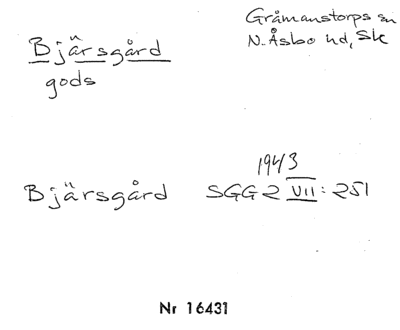 Bjärsgård
gods
Gråmanstorps sn
N. Åsbo hd, Sk
1943
Bjärsgård SGG 2 VII: 251
Nr 16431